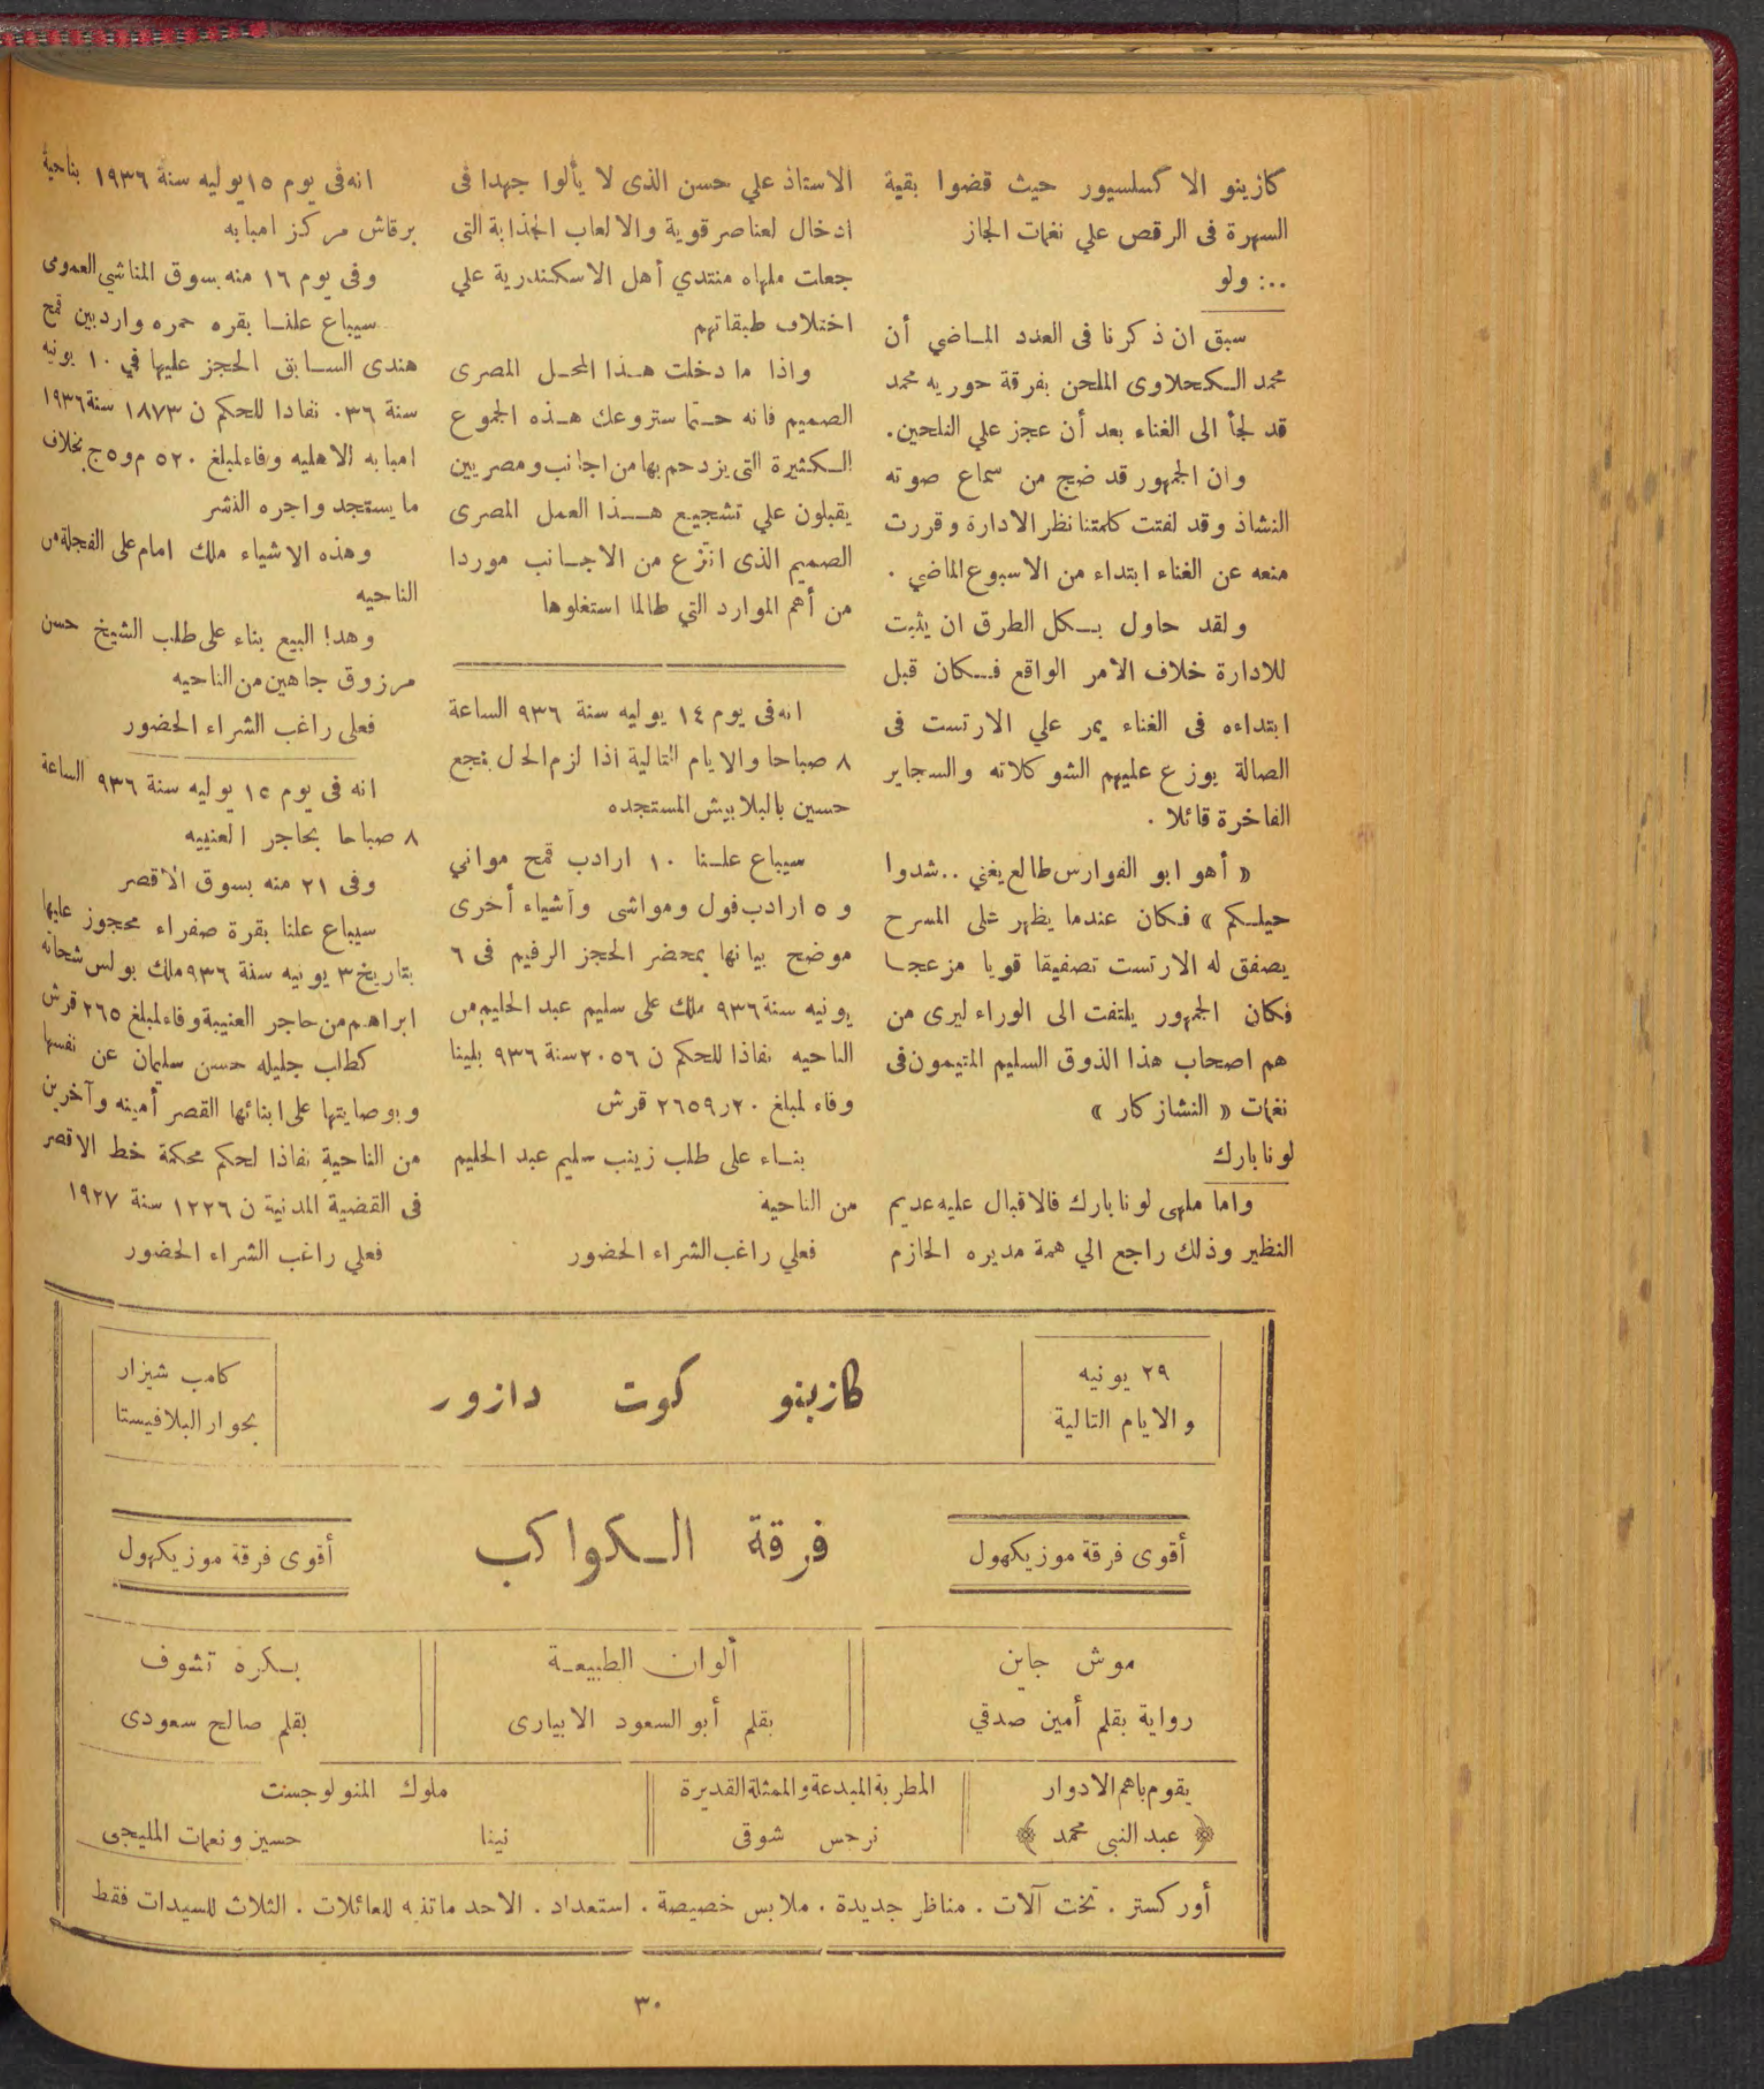 كازينو الا كسلسيور حيث قضوا بقية
السهرة فى الرقص علي نغمات الجاز
..: ولو
سبق ان ذكرنا فى العدد الماضي أن
محمد الكحلاوى الملحن بفرقة حوريه محمد
قد لجأ الى الغناء بعد أن عجز علي التلحين.
وان الجمهور قد ضج من سماع صوته
النشاذ وقد لفتت كلمتنا نظر الادارة وقررت
منعه عن الغناء ابتداء من الاسبوع الماضي .
ولقد حاول بكل الطرق ان يثبت
للادارة خلاف الأمر الواقع فكان قبل
ابتداءه فى الغناء يمر علي الارتست فى
الصالة يوزع عليهم الشوكلاته والسجاير
الفاخرة قائلا .
« أهو ابو الفوارس طالع يغني .. شدوا
حيلكم » فكان عندما يظهر على المسرح
يصفق له الارتست تصفيقا قويا مزعجا
فكان الجمهور يلتفت الى الوراء ليرى من
هم اصحاب هذا الذوق السليم المتيمون فى
نغمات « النشاز كار »
لونا بارك
واما ملهى لونا بارك فالاقبال عليه عديم
النظير وذلك راجع الي همة مديره الحازم
الاستاذ علي حسن الذى لا يألوا جهدا فى
ادخال لعناصر قوية والالعاب الجذابة التى
جعات ملهاه منتدي أهل الاسكندرية علي
اختلاف طبقاتهم
واذا ما دخلت هذا المحل المصرى
الصميم فانه حتما ستروعك هذه الجموع
الكثيرة التى يزدحم بها من اجانب ومصريين
يقبلون علي تشجيع هذا العمل المصرى
الصميم الذى انتزع من الاجانب موردا
من أهم الموارد التي طالما استغلوها
انه فى يوم ١٤ يوليه سنة ٩٣٦ الساعة
٨ صباحا والايام التالية اذا لزم الحال بنجع
حسين بالبلابيش المستجده
سيباع علنا ١٠ ارادب قمح مواني
و ٥ ارادب فول ومواشى وأشياء أخرى
موضح بيانها بمحضر الحجز الرقيم فى ٦
يونيه سنة ٩٣٦ ملك على سليم عبد الحليم من
الناحيه نفاذا للحكم ن ٢٠٥٦ سنة ٩٣٦ بلينا
وفاء لمبلغ ٢٠ر٢٦٥٩ قرش
بناء على طلب زينب سليم عبد الحليم
من الناحية
فعلي راغب الشراء الحضور
انه فى يوم ١٥ يوليه سنة ١٩٣٦ بناحية
برقاش مركز امبابه
وفى يوم ١٦ منه بسوق المناشي العمومى
سيباع علنا بقره حمره واردبين قمح
هندى السابق الحجز عليها في ١٠ يونيه
سنة ٣٦. نفاذا للحكم ن ١٨٧٣ سنة ١٩٣٦
امبابه الاهليه وفاء لمبلغ ٥٢٠ م و٥ ج بخلاف
ما يستجد واجره النشر
وهذه الاشياء ملك امام على الفجلة من
الناحيه
وهدا البيع بناء على طلب الشيخ حسن
مرزوق جاهين من الناحيه
فعلى راغب الشراء الحضور
انه فى يوم ١٥ يوليه سنة ٩٣٦ الساعة
٨ صباحا بحاجر العنيبه
وفى ٢١ منه بسوق الأقصر
سيباع علنا بقرة صفراء محجوز عليها
بتاريخ ٣ يونيه سنة ٩٣٦ ملك بولس شحاته
ابراهيم من حاجر العنيبة وفاء لمبلغ ٢٦٥ قرش
كطلب جليله حسن سليمان عن نفسها
وبوصايتها على ابنائها القصر أمينه وآخرين
من الناحية نفاذا لحكم محكمة خط الاقصر
فى القضية المدنية ن ١٢٢٦ سنة ١٩٢٧
فعلي راغب الشراء الحضور
٢٩ يونيه
والايام التالية
كازينو كوت دازور
كامب شيزار
بجوار البلافيستا
أقوى فرقة موزيكهول
فرقة الكواكب
أقوى فرقة موزيكهول
موش جاين
رواية بقلم أمين صدقي
ألوان الطبيعة
بقلم أبو السعود الابيارى
بكره تشوف
بقلم صالح سعودى
يقوم باهم الادوار
﴿ عبد النبى محمد ﴾
المطربة المبدعة والممثلة القديرة
نرجس شوقى
ملوك المنولوجست
نينا حسين ونعمات المليجى
أوركستر . تخت آلات . مناظر جديدة . ملابس خصيصة . استعداد . الاحد ماتنيه للعائلات . الثلاث للسيدات فقط
٣٠